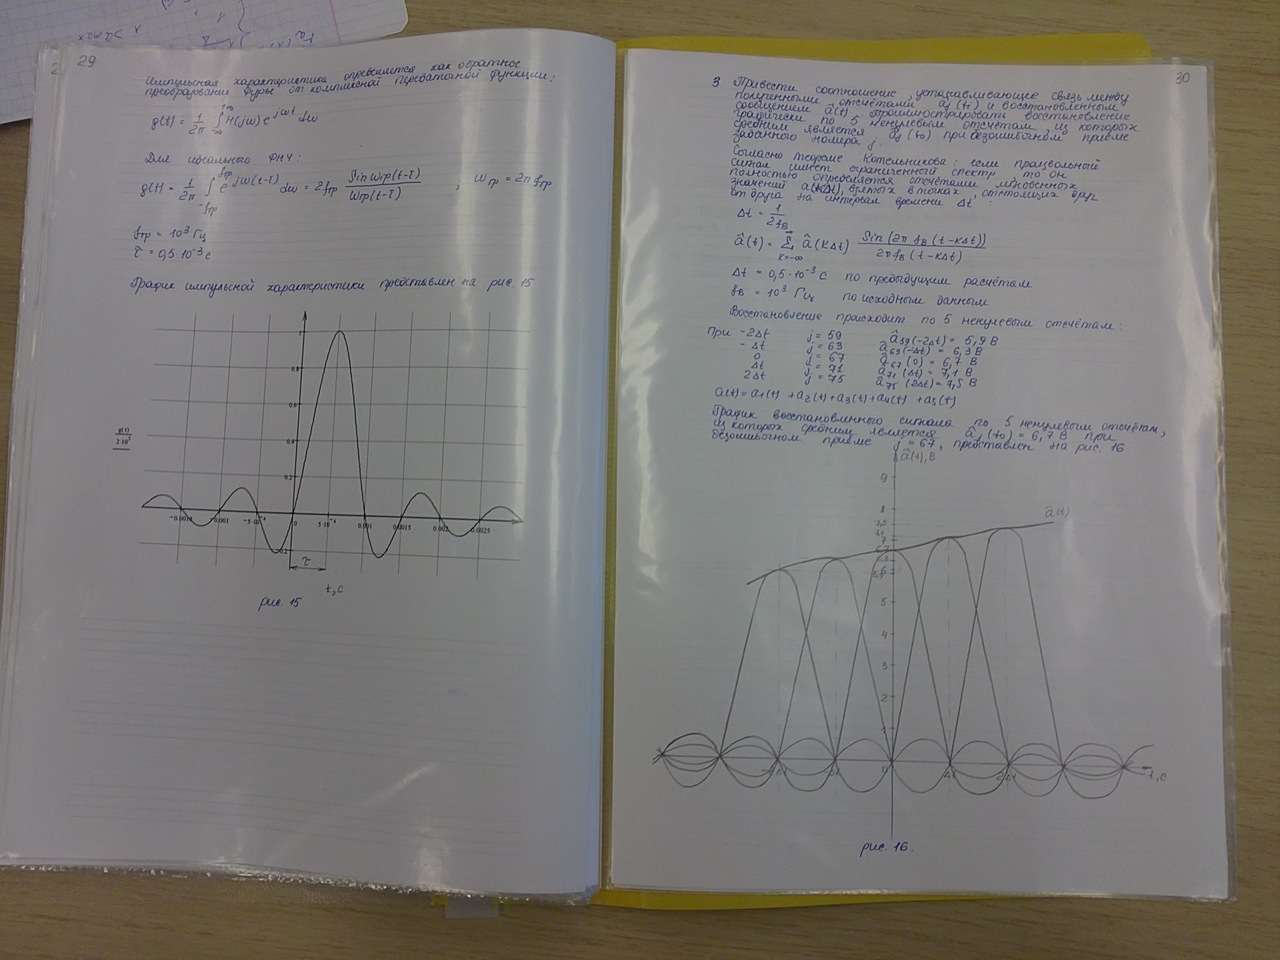 29
Импульсная характеристика определяется как обратное
преобразование Фурье от комплексной передаточной функции:
g(t) = 1/2π ∫ H(jω) e^{jωt} dω
Для идеального ФНЧ:
g(t) = 1/2π ∫ e^{jω(t-τ)} dω = 2fгр Sin ωгр(t-τ) / ωгр(t-τ) , ωгр = 2π fгр
fгр = 10³ Гц
τ = 0,5·10⁻³ с
График импульсной характеристики представлен на рис. 15
0.8
0.6
0.4
g(t)
2·10³
0.2
-0.0015 -0.001 -5·10⁻⁴ 0 5·10⁻⁴ 0.001 0.0015 0.002 0.0025
τ
t, с
рис. 15
30
3 Привести соотношение, устанавливающее связь между
полученными отсчётами âj(t₀) и восстановленным
сообщением â(t). Проиллюстрировать восстановление
графически по 5 ненулевым отсчётам, из которых
средним является âj(t₀) при безошибочном приёме
заданного номера j.
Согласно теореме Котельникова: если произвольный
сигнал имеет ограниченный спектр то он
полностью определяется отсчётами мгновенных
значений a(kΔt), взятых в точках, отстоящих друг
от друга на интервал времени Δt:
Δt = 1/2fв
â(t) = Σ k=-∞ ∞ â(kΔt) Sin(2π fв (t-kΔt)) / 2π fв (t-kΔt)
Δt = 0,5·10⁻³ с по предыдущим расчётам
fв = 10³ Гц по исходным данным
Восстановление происходит по 5 ненулевым отсчётам:
При -2Δt j = 59 â59(-2Δt) = 5,9 В
-Δt j = 63 â63(-Δt) = 6,3 В
0 j = 67 â67(0) = 6,7 В
Δt j = 71 â71(Δt) = 7,1 В
2Δt j = 75 â75(2Δt) = 7,5 В
a(t) = a1(t) + a2(t) + a3(t) + a4(t) + a5(t)
График восстановленного сигнала по 5 ненулевым отсчётам,
из которых средним является âj(t₀) = 6,7 В при
безошибочном приёме j = 67, представлен на рис. 16
â(t), В
9
8
7,5
7,1
7
6,7
6,3
6
5,9
5
4
3
2
1
â(t)
-2Δt -Δt 0 Δt 2Δt t, с
рис. 16.